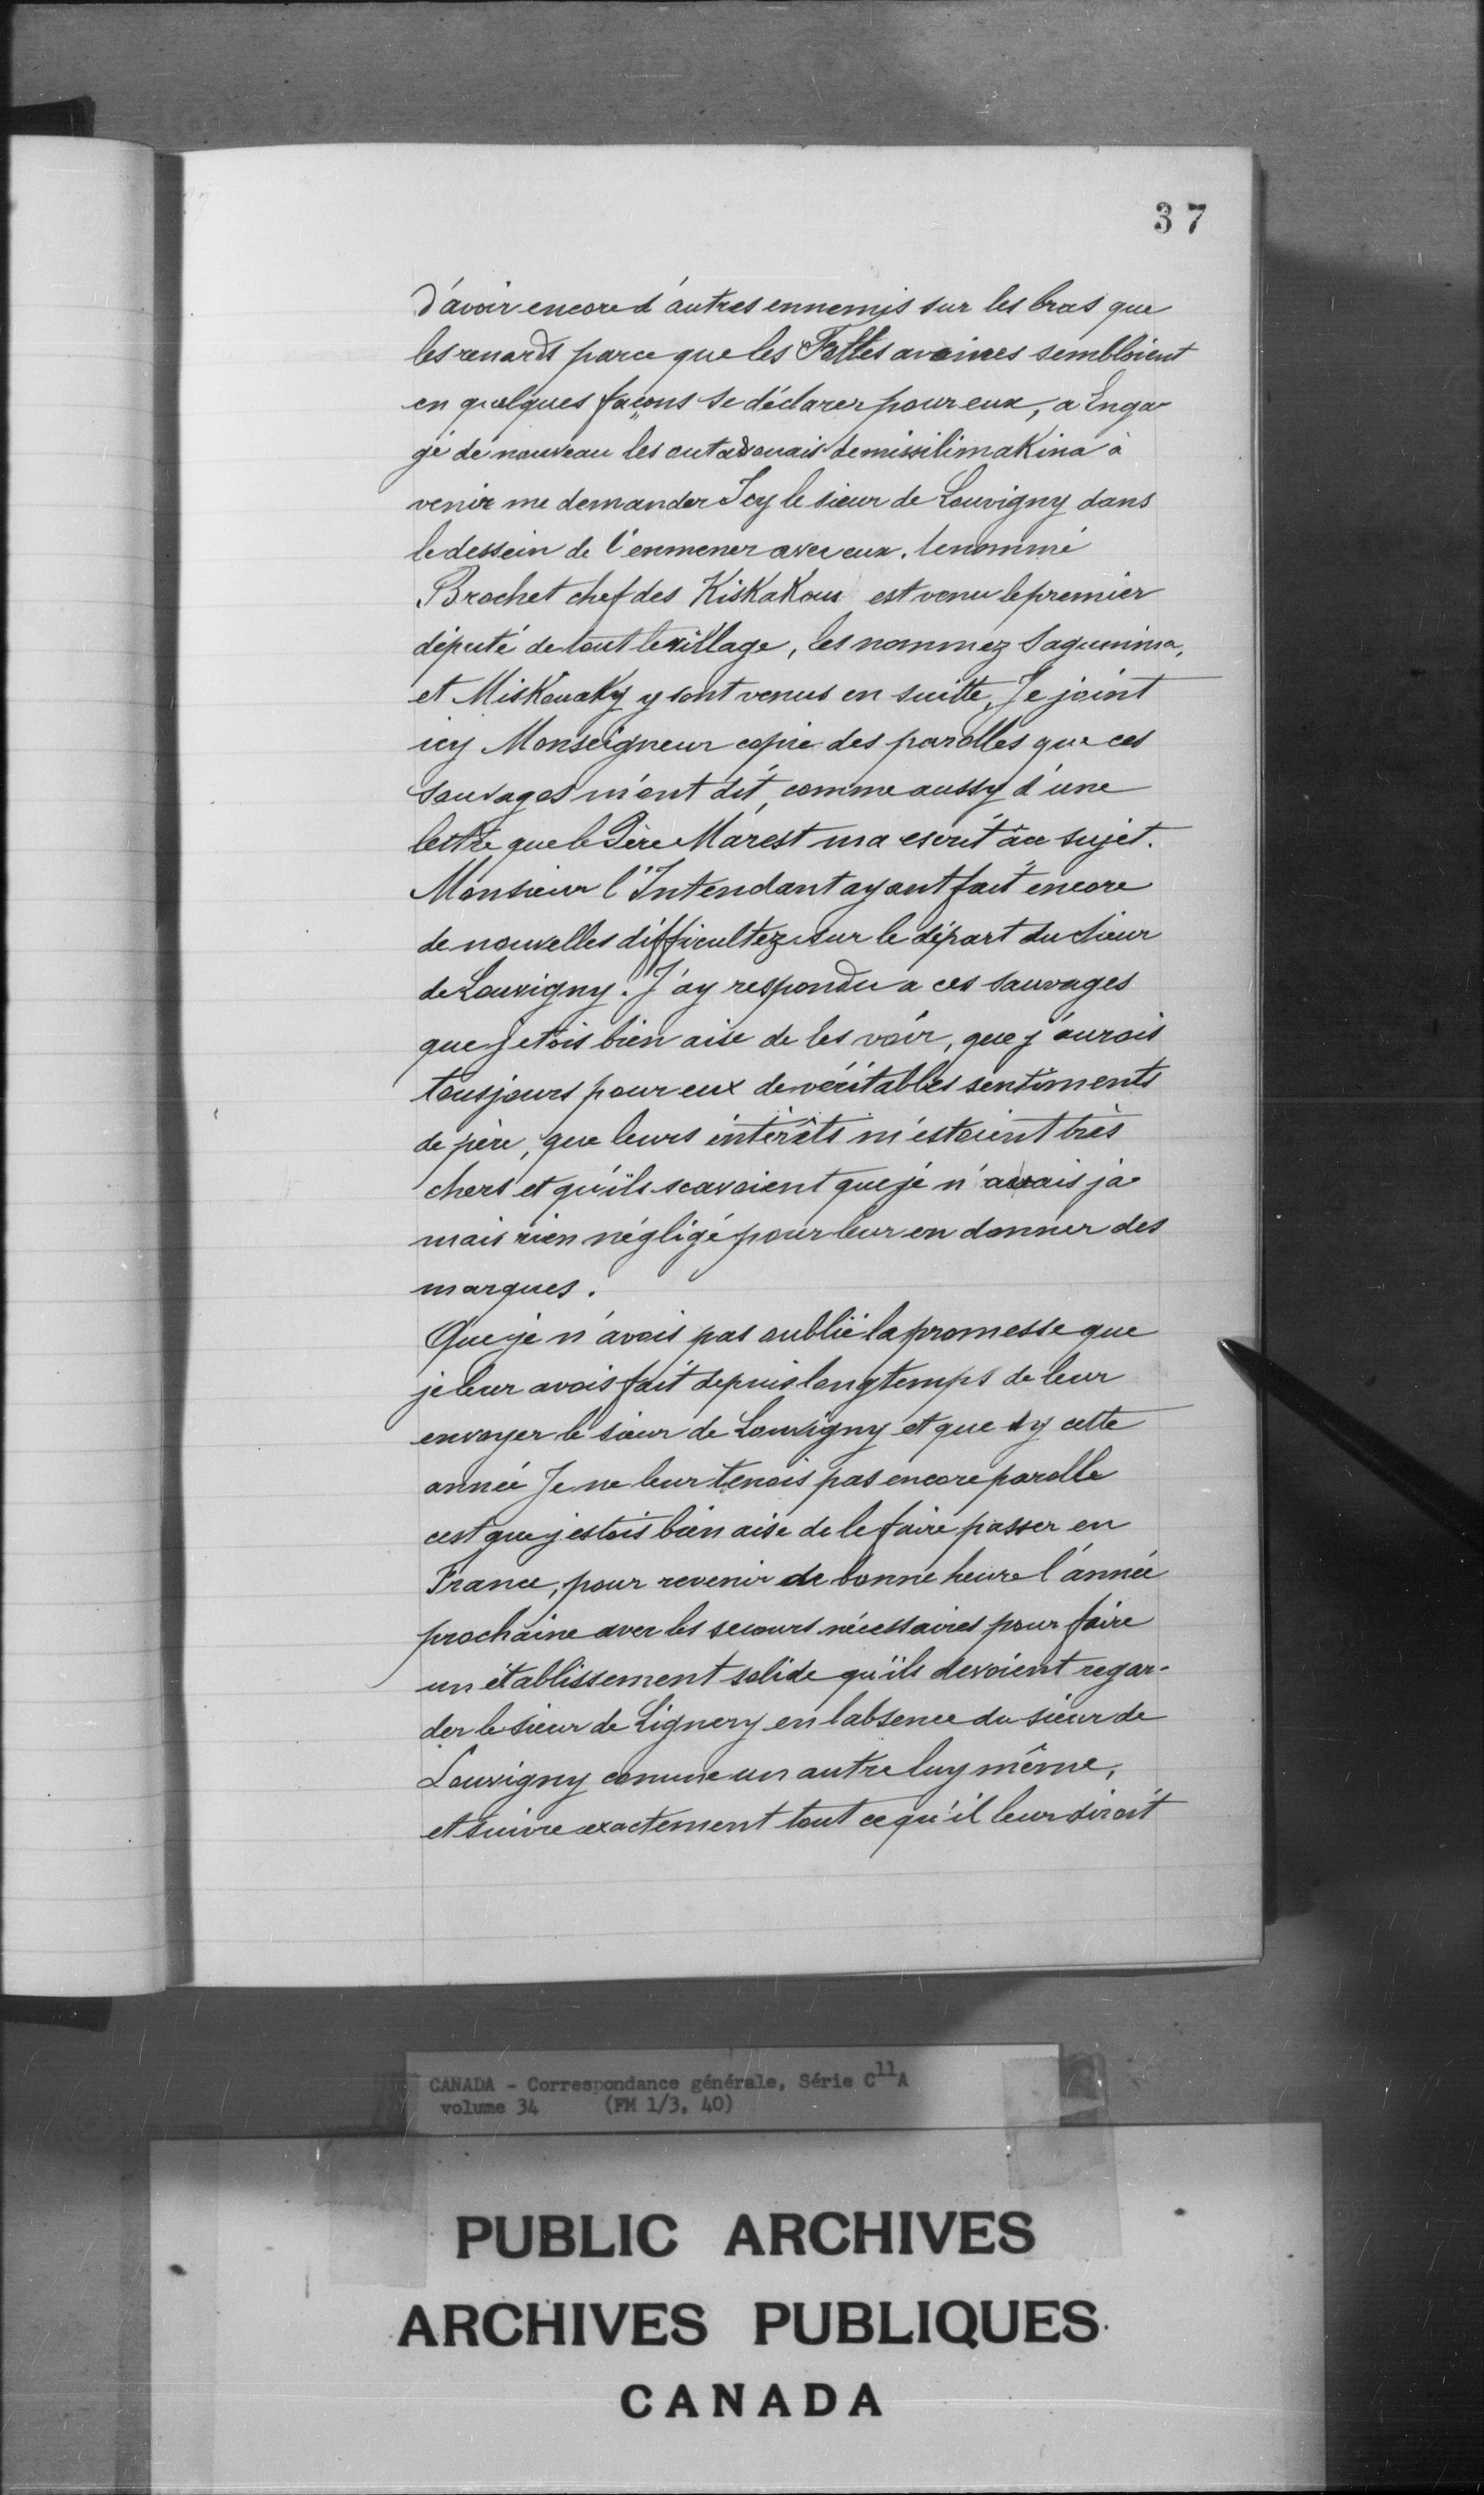 37
d'avoir encore d'autres ennemis sur les bras que
les renards parce que les Folles avoines sembloient
en quelques façons se déclarer pour eux, a Enga-
gé de nouveau les outavouais de missilimakina à
venir me demander Icy le sieur de Louvigny dans
le dessein de l'enmener avec eux. le nommé
Brochet chef des KisKaKous est venu le premier
député de tout le village, les nommez Saguinima,
et MisKouaKy y sont venus en suitte, Je joint
icy Monseigneur copie des parolles que ces
sauvages m'ont dit, comme aussy d'une
lettre que le Père Marest ma escrit à ce sujet.
Monsieur l'Intendant ayant fait encore
de nouvelles difficultez sur le départ du sieur
de Louvigny. J'ay respondu a ces sauvages
que jetois bien aise de les voir, que j'aurois
tousjours pour eux de véritables sentiments
de père, que leurs intérêts m'estoient très
chers et qu'ils scavoient que je n'avais ja-
mais rien négligé pour leur en donner des
marques.
Que je n'avois pas oublié la promesse que
je leur avois fait depuis longtemps de leur
envoyer le sieur de Louvigny et que sy cette
année Je ne leur tenois pas encore parolle
cest que jestois bien aise de le faire passer en
France, pour revenir de bonne heure l'année
prochaine avec les secours nécessaires pour faire
un établissement solide qu'ils devoient regar-
der le sieur de Lignery en labsence du sieur de
Louvigny comme un autre luy même,
et suivre exactement tout ce qu'il leur diroit
CANADA - Correspondance générale, Série C11A
volume 34 (FM 1/3, 40)
PUBLIC ARCHIVES
ARCHIVES PUBLIQUES
CANADA